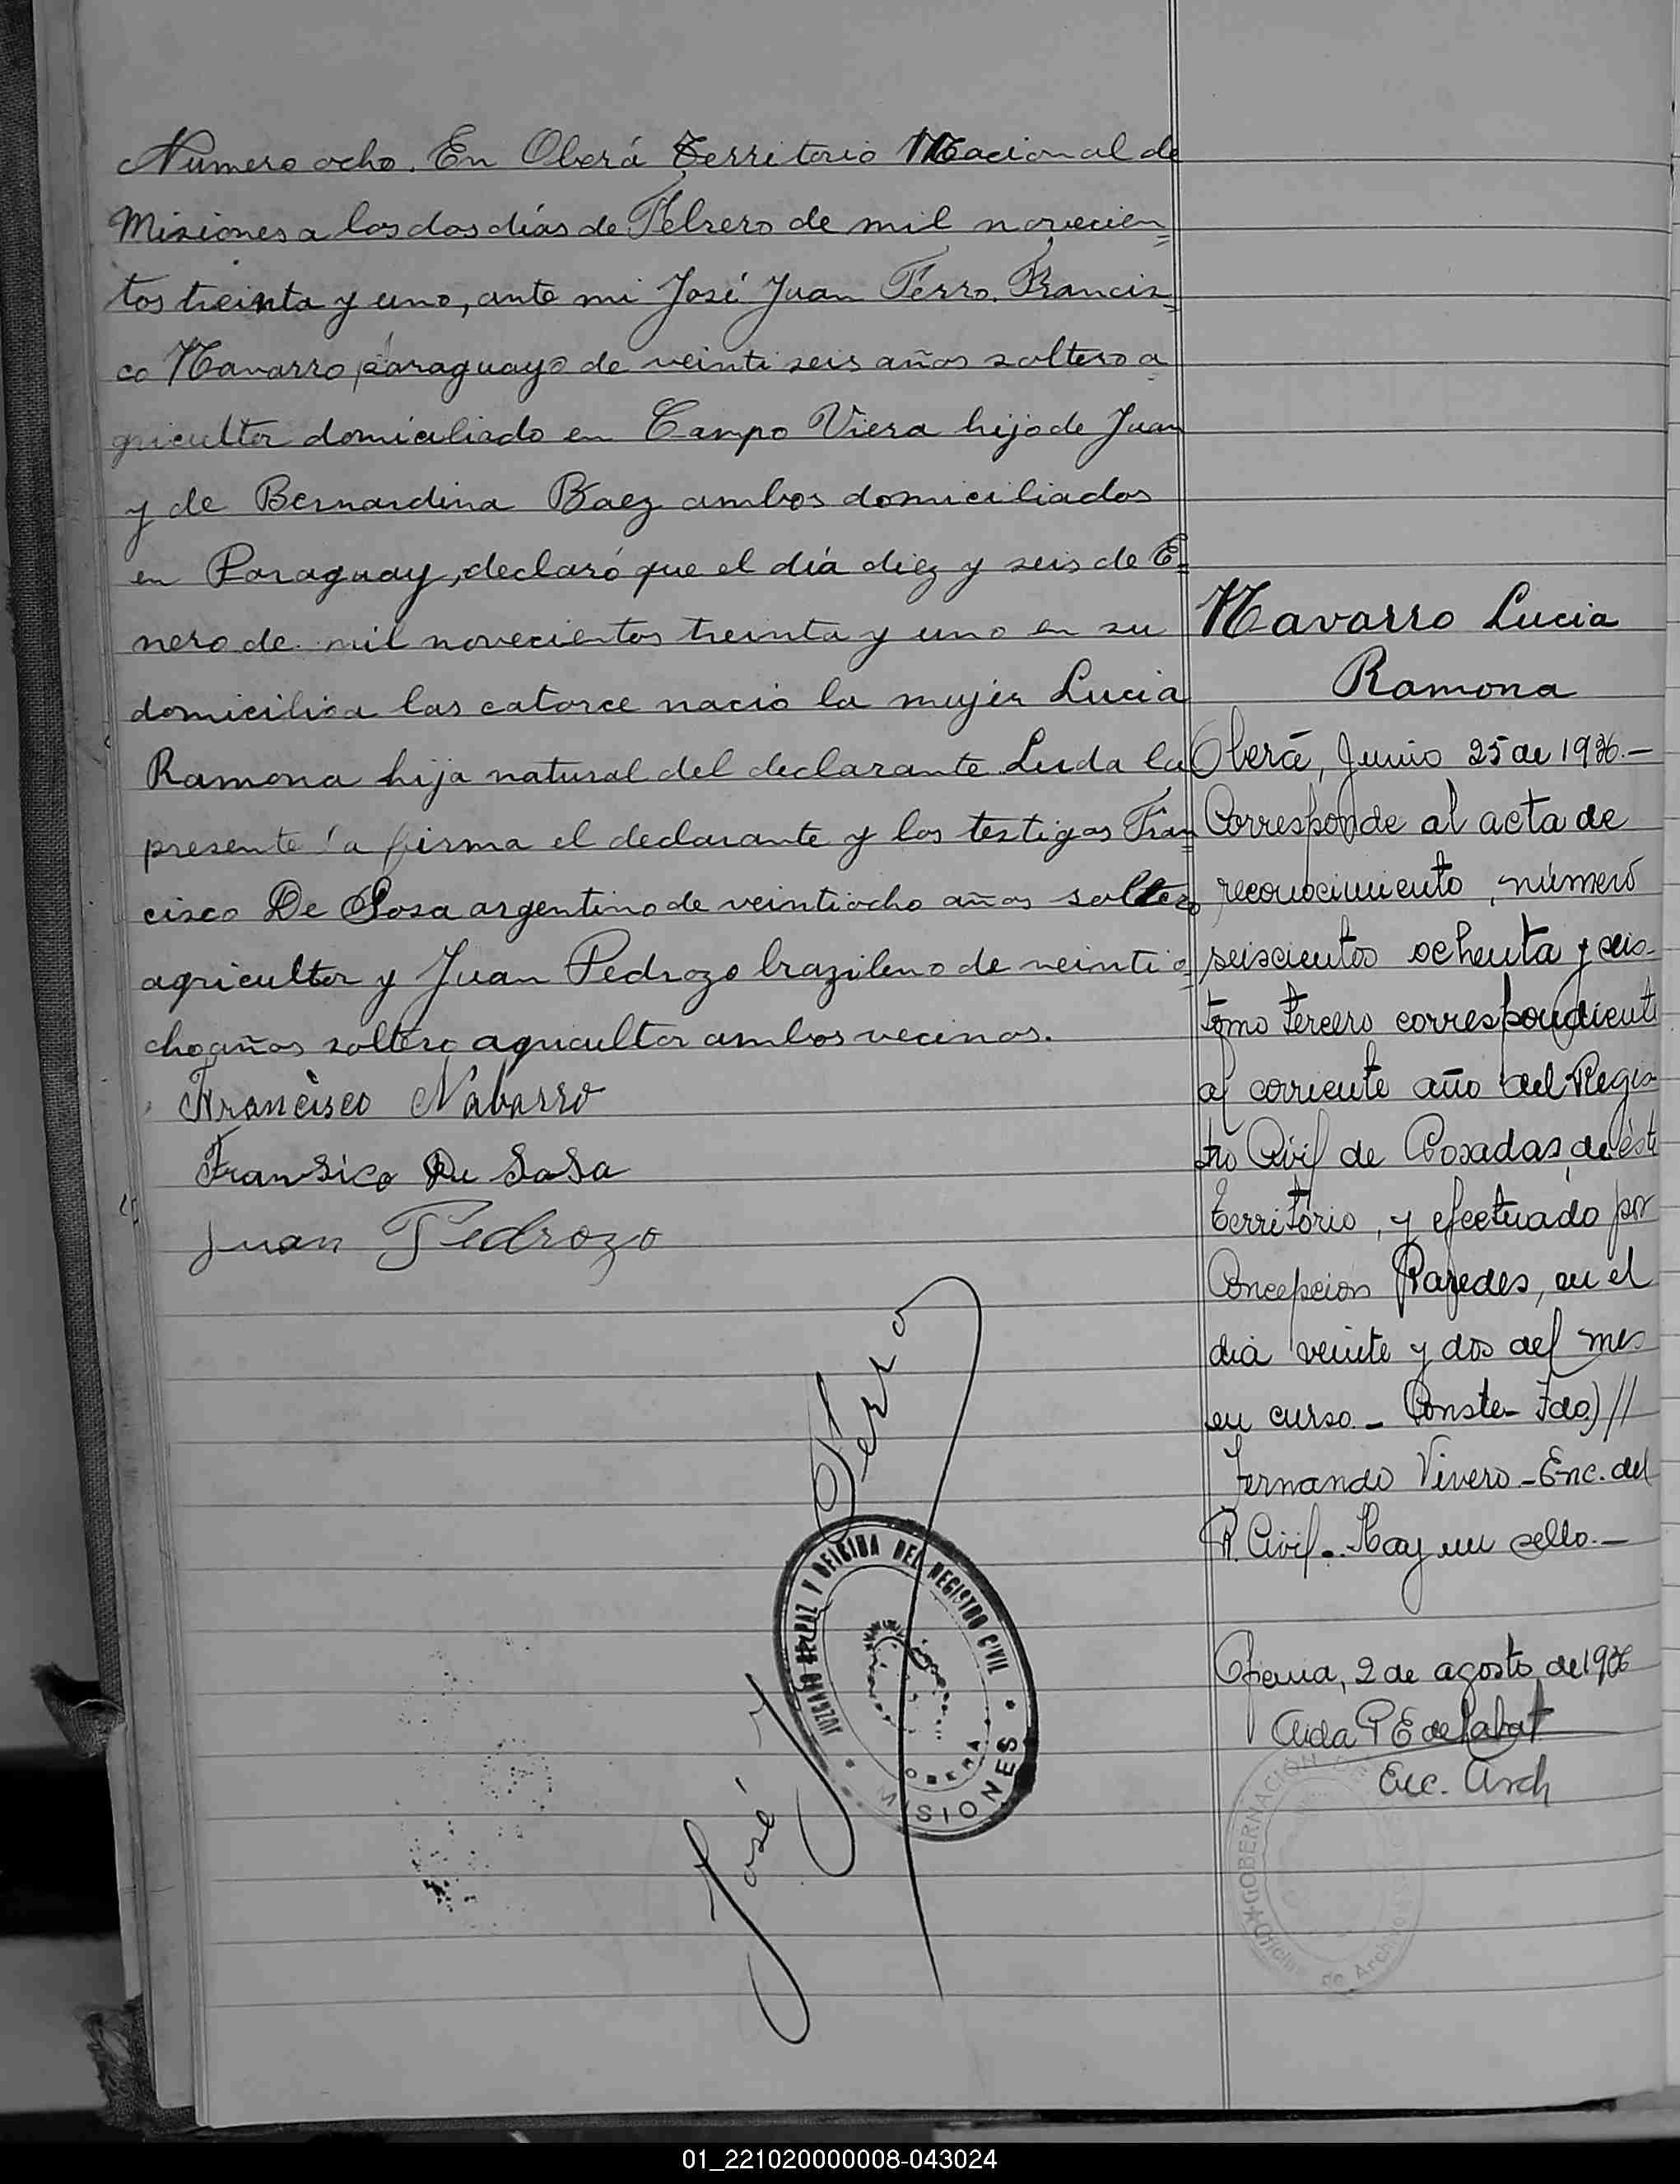 Numero ocho. En Oberá Territorio Nacional de
Misiones a los dos días de Febrero de mil novecien=
tos treinta y uno, ante mi José Juan Ferro. Francis=
co Navarro paraguayo de veinti seis años soltero a=
gricultor domiciliado en Campo Viera hijo de Juan
y de Bernardina Baez ambos domiciliados
en Paraguay, declaró que el día diez y seis de E=
nero de mil novecientos treinta y uno en su
domicilio a las catorce nació la mujer Lucia
Ramona hija natural del declarante. Leida la
presente la firma el declarante y los testigos Fran=
cisco De Sosa argentino de veintiocho años soltero
agricultor y Juan Pedrozo brazileno de veintio=
cho años soltero agricultor ambos vecinos.
Francisco Nabarro
Fransico De SoSa
Juan Pedrozo
José J Ferro
JUZGADO DE PAZ Y OFICINA DEL REGISTRO CIVIL
OBERA
MISIONES
Navarro Lucia
Ramona
Oberá, Junio 25 de 1936.—
Corresponde al acta de
reconocimiento, número
seiscientos ochenta y seis-
tomo tercero correspondiente
al corriente año del Regis
tro Civil de Posadas, de éste
territorio, y efectuado por
Concepción Paredes, en el
dia veinte y dos del mes
en curso. - Conste - Fdo) //
Fernando Vivero - Enc. del
R. Civil. Hay un sello.—
2 de agosto de 1936
Aida P E de
Enc. Arch
GOBERNACION
Oficina de Archivo
01_221020000008-043024